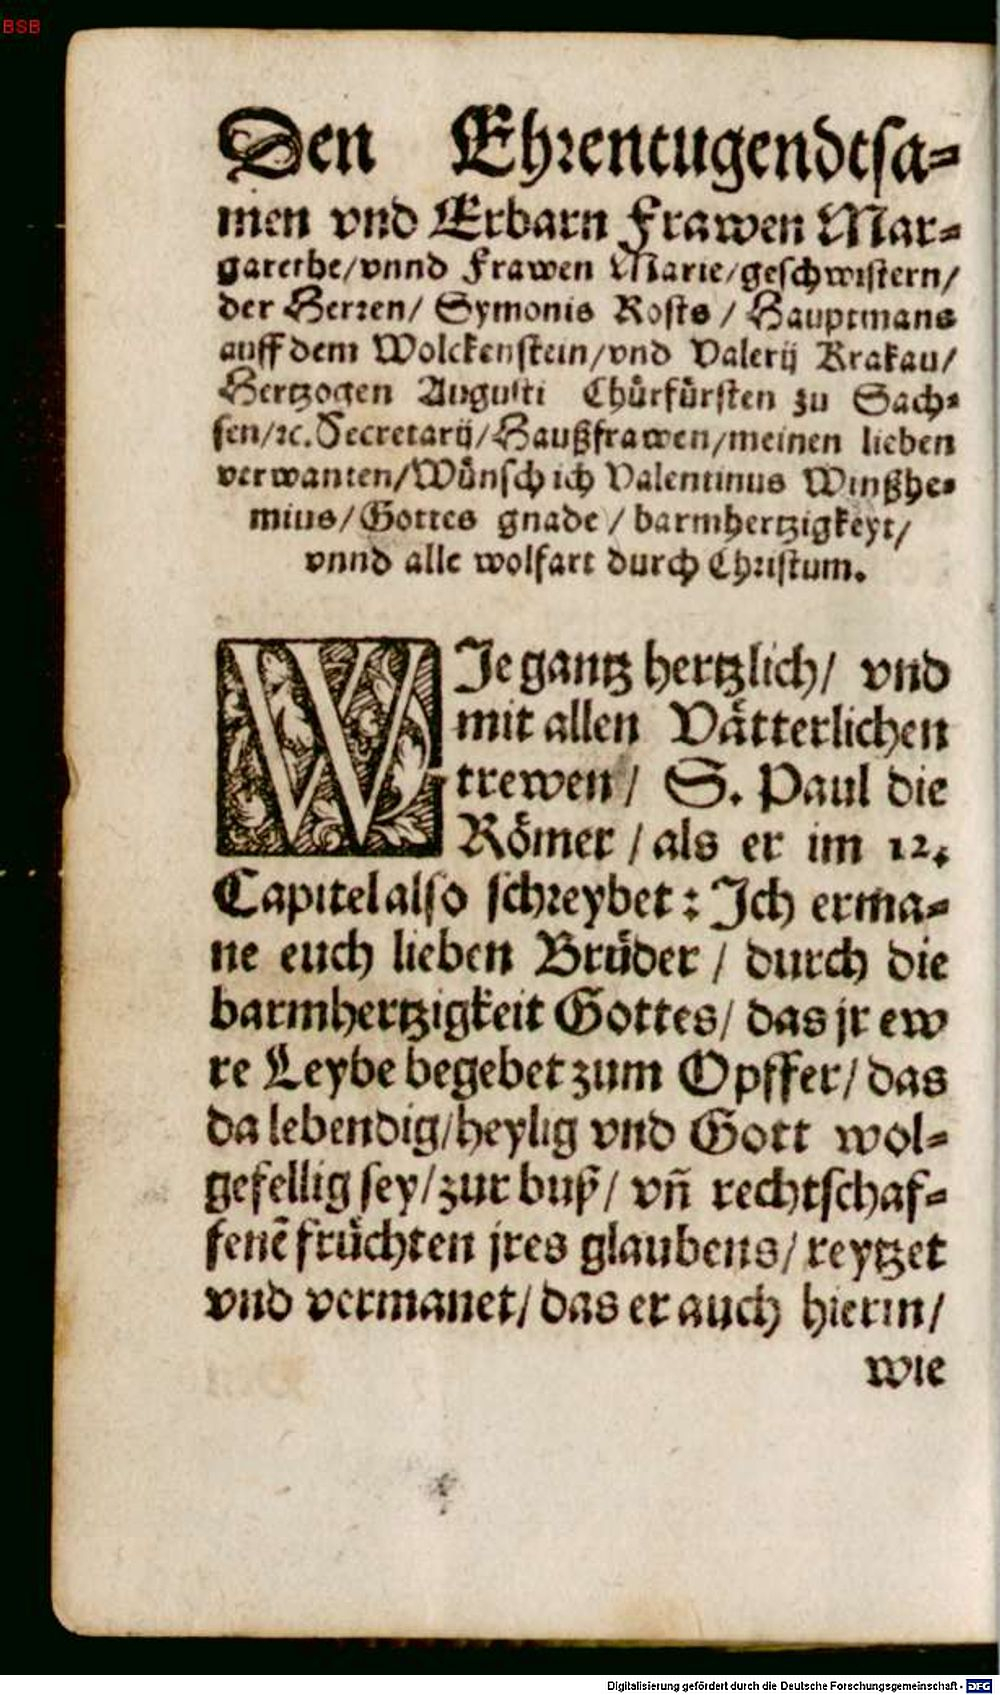 BSB
Den Ehrentugendtsa=
men vnd Erbarn Frawen Mar=
garethe/vnnd Frawen Marie/geschwistern/
der Herren/ Symonis Rosts / Hauptmans
auff dem Wolckenstein/vnd Valerij Krakau/
Hertzogen Augusti Chůrfürsten zu Sach=
sen/ꝛc. Secretarij/Haußfrawen/meinen lieben
verwanten/Wünsch ich Valentinus Winßhe=
mius/Gottes gnade / barmhertzigkeyt/
vnnd alle wolfart durch Christum.
WJe gantz hertzlich/ vnd
mit allen Vätterlichen
trewen / S. Paul die
Römer / als er im 12.
Capitel also schreybet : Jch erma=
ne euch lieben Brüder / durch die
barmhertzigkeit Gottes/ das jr ew
re Leybe begebet zum Opffer/ das
da lebendig/heylig vnd Gott wol=
gefellig sey/zur buß/ vñ rechtschaf=
fenē früchten jres glaubens/ reytzet
vnd vermanet/ das er auch hierin/
wie
Digitalisierung gefördert durch die Deutsche Forschungsgemeinschaft - DFG